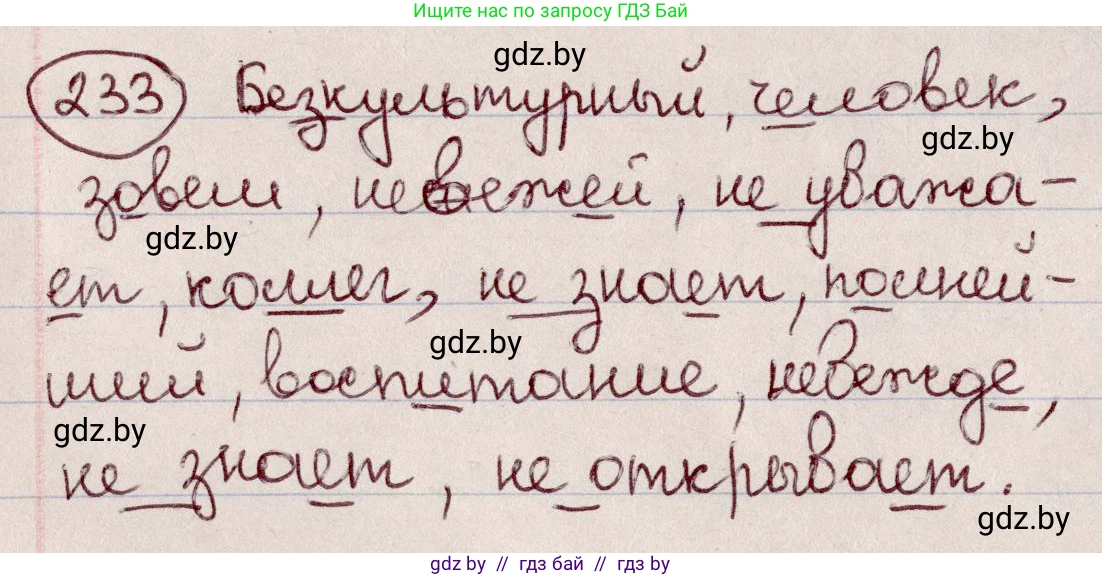 Ищите нас по запросу ГДЗ Бай
gdz.by
233 Безкультурный, человек,
gdz.by
зовем, невежей, не уважа-
gdz.by
ет, коллег, не знает, полней-
gdz.by
ший, воспитание, невежде,
gdz.by
не знает, не открывает.
gdz.by
gdz by // гдз бай // гдз by